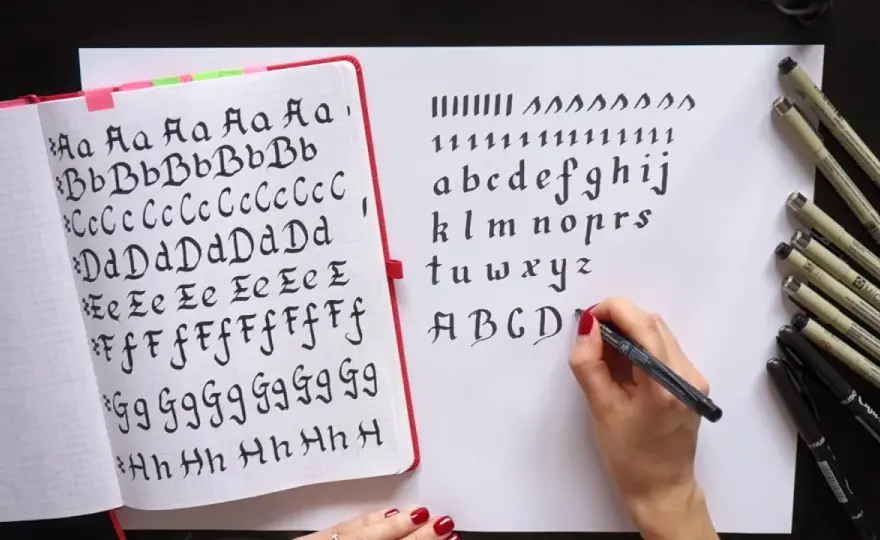 Aa Aa Aa Aa Aa
Bb Bb Bb Bb Bb
Cc Cc Cc Cc Cc Cc Cc C
Dd Dd Dd Dd Dd
Ee Ee Ee Ee Ee E
Ff Ff Ff Ff Ff Ff
Gg Gg Gg Gg Gg Gg
Hh Hh Hh Hh H
a b c d e f g h i j
k l m n o p r s
t u w x y z
A B C D